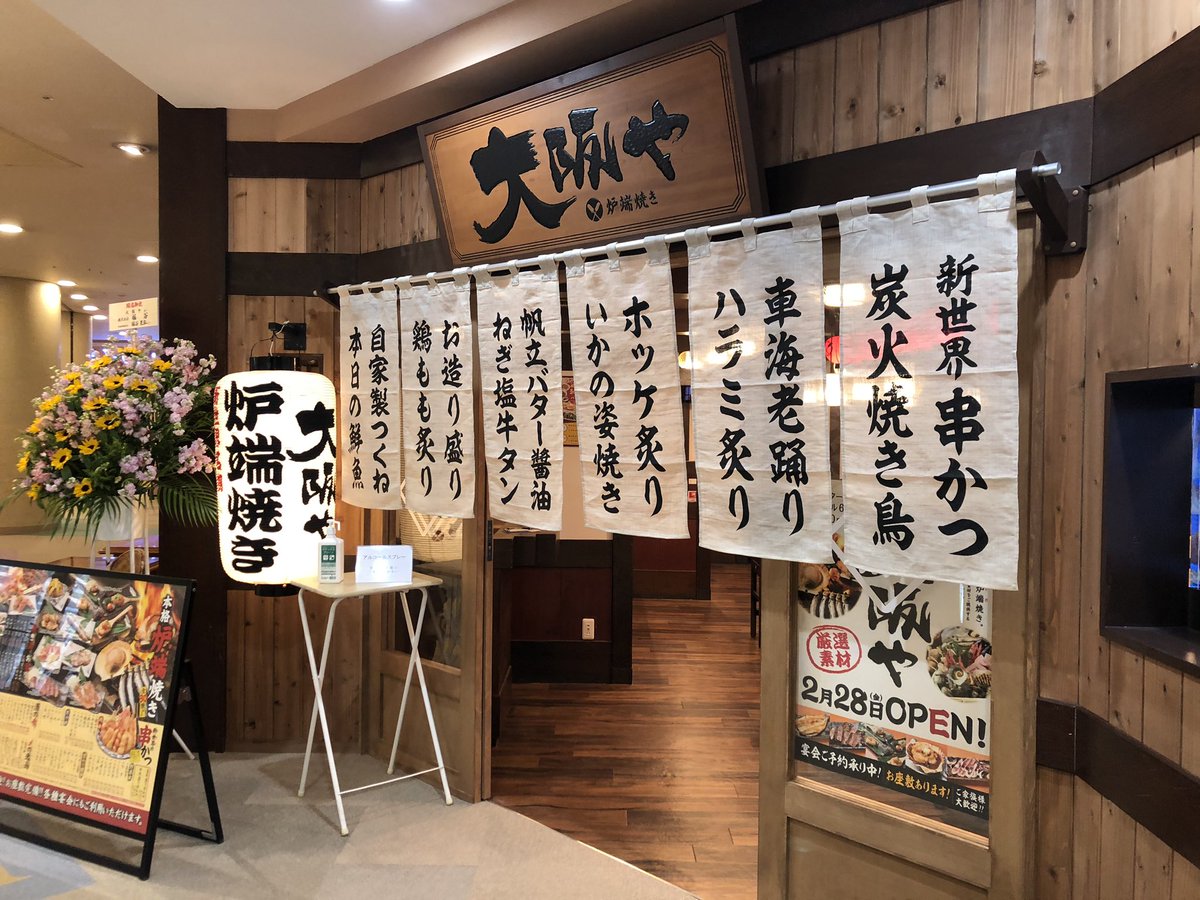 大阪や
炉端焼き
新世界串かつ
炭火焼き鳥
車海老踊り
ハラミ炙り
ホッケ炙り
いかの姿焼き
帆立バター醤油
ねぎ塩牛タン
お造り盛り
鶏もも炙り
自家製つくね
本日の鮮魚
大阪や
炉端焼き
アルコールスプレー
本格炉端焼き
串かつ
お座敷完備!!各種宴会にもご利用いただけます。
阪や
厳選
素材
2月28日(金)OPEN!
宴会ご予約承り中!お座敷あります!
ご家族様
大歓迎!!